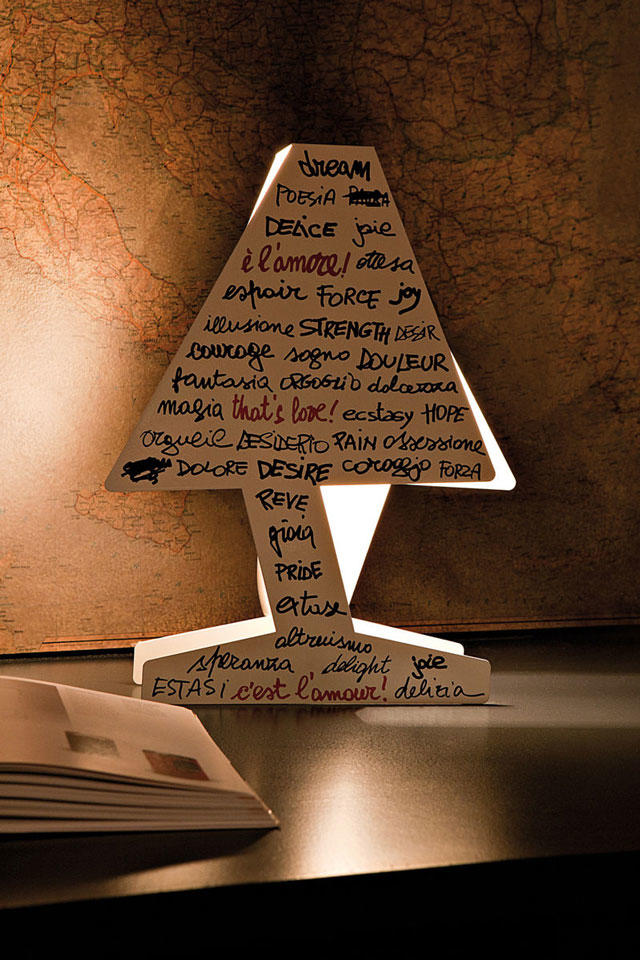 dream
POESIA PAURA
DELICE joie
è l'amore! attesa
espoir FORCE joy
illusione STRENGTH DESIR
courage sogno DOULEUR
fantasia ORGOGLIO dolcezza
magia that's love! ecstasy HOPE
orgueil DESIDERIO PAIN ossessione
DOLORE DESIRE coraggio FORZA
REVE
gioia
PRIDE
extase
altruismo
speranza delight joie
ESTASI c'est l'amour! delizia